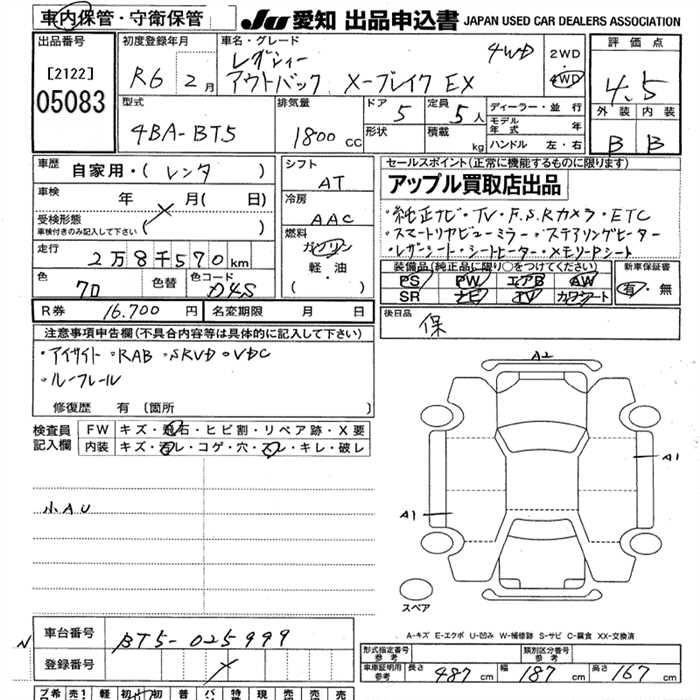 車内保管・守衛保管 JU 愛知 出品申込書 JAPAN USED CAR DEALERS ASSOCIATION
出品番号 初度登録年月 車名・グレード 評価点
[2122] R6 2月 レガシィー 4WD 2WD
05083 アウトバック X-ブレイク EX 4WD 4.5
型式 排気量 ドア 5 定員 5人 ディーラー・並行 外装 内装
4BA-BT5 1800cc 形状 積載 kg モデル年式 年 B B
ハンドル 左・右
車歴 自家用・(レンタ) シフト AT セールスポイント(正常に機能するものに限ります)
車検 年 月( 日) 冷房 AAC アップル買取店出品
受検形態 ・純正ナビ・TV・F.S.Rカメラ・ETC
車検付きのみ記入して下さい ( ) 燃料 ・スマートリヤビューミラー・ステアリングヒーター
走行 2万8千570km ガソリン ・レザーシート・シートヒーター・メモリーPシート
色 色替 色コード D4S 軽・油 装備品(純正品に限り○をつけてください) 新車保証書
( ) PS PW エアB AW 有・無
SR ナビ TV カワシート
R券 16.700円 名変期限 月 日 後日品
注意事項申告欄(不具合内容等は具体的に記入して下さい) 保
・アイサイト・RAB・SRVD・VDC
・ルーフレール
修復歴 有 〔箇所 〕
検査員 FW キズ・飛石・ヒビ割・リペア跡・X要
記入欄 内装 キズ・汚レ・コゲ・穴・スレ・キレ・破レ
A2
A1
小AU
A1
スペア
車台番号 BT5-025999
A-キズ E-エクボ U-凹み W-補修跡 S-サビ C-腐食 XX-交換済
登録番号
型式指定番号 参考 類別区分番号 参考
車車証明用 参考 長さ 487cm 幅 187cm 高さ 167cm